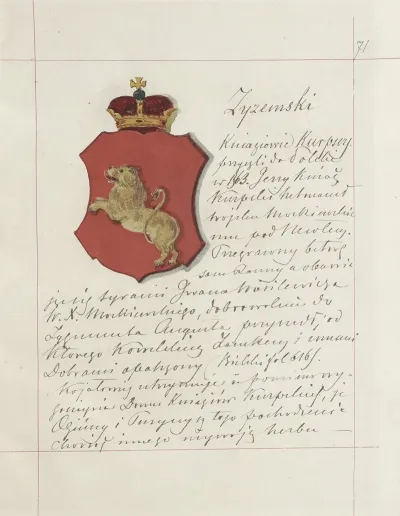 71
Zyzemski
Kniaziowie Kurpscy
przyszli do Polski
w 163. Jerzy Kniaź
Kurpski hetmanił
wojsku Moskiewskie
mu pod Newlem.
Przegrawszy bitwę
sam ranny a obawia
jąc się tyranii Iwana Wasilewicza
W. X. Moskiewskiego, dobrowolnie do
Zygmunta Augusta przyszedł, od
którego Kowelskim Zamkiem i innemi
Dobrami opatrzony Bielski fol 616/.
Kojałowicz utrzymuje iż pomimo wy-
gaśnięcia Domu Kniaziów Kurpskich, je
Ogińscy i Puzynowie tego pochodzenia
chociaż innego używają herbu —